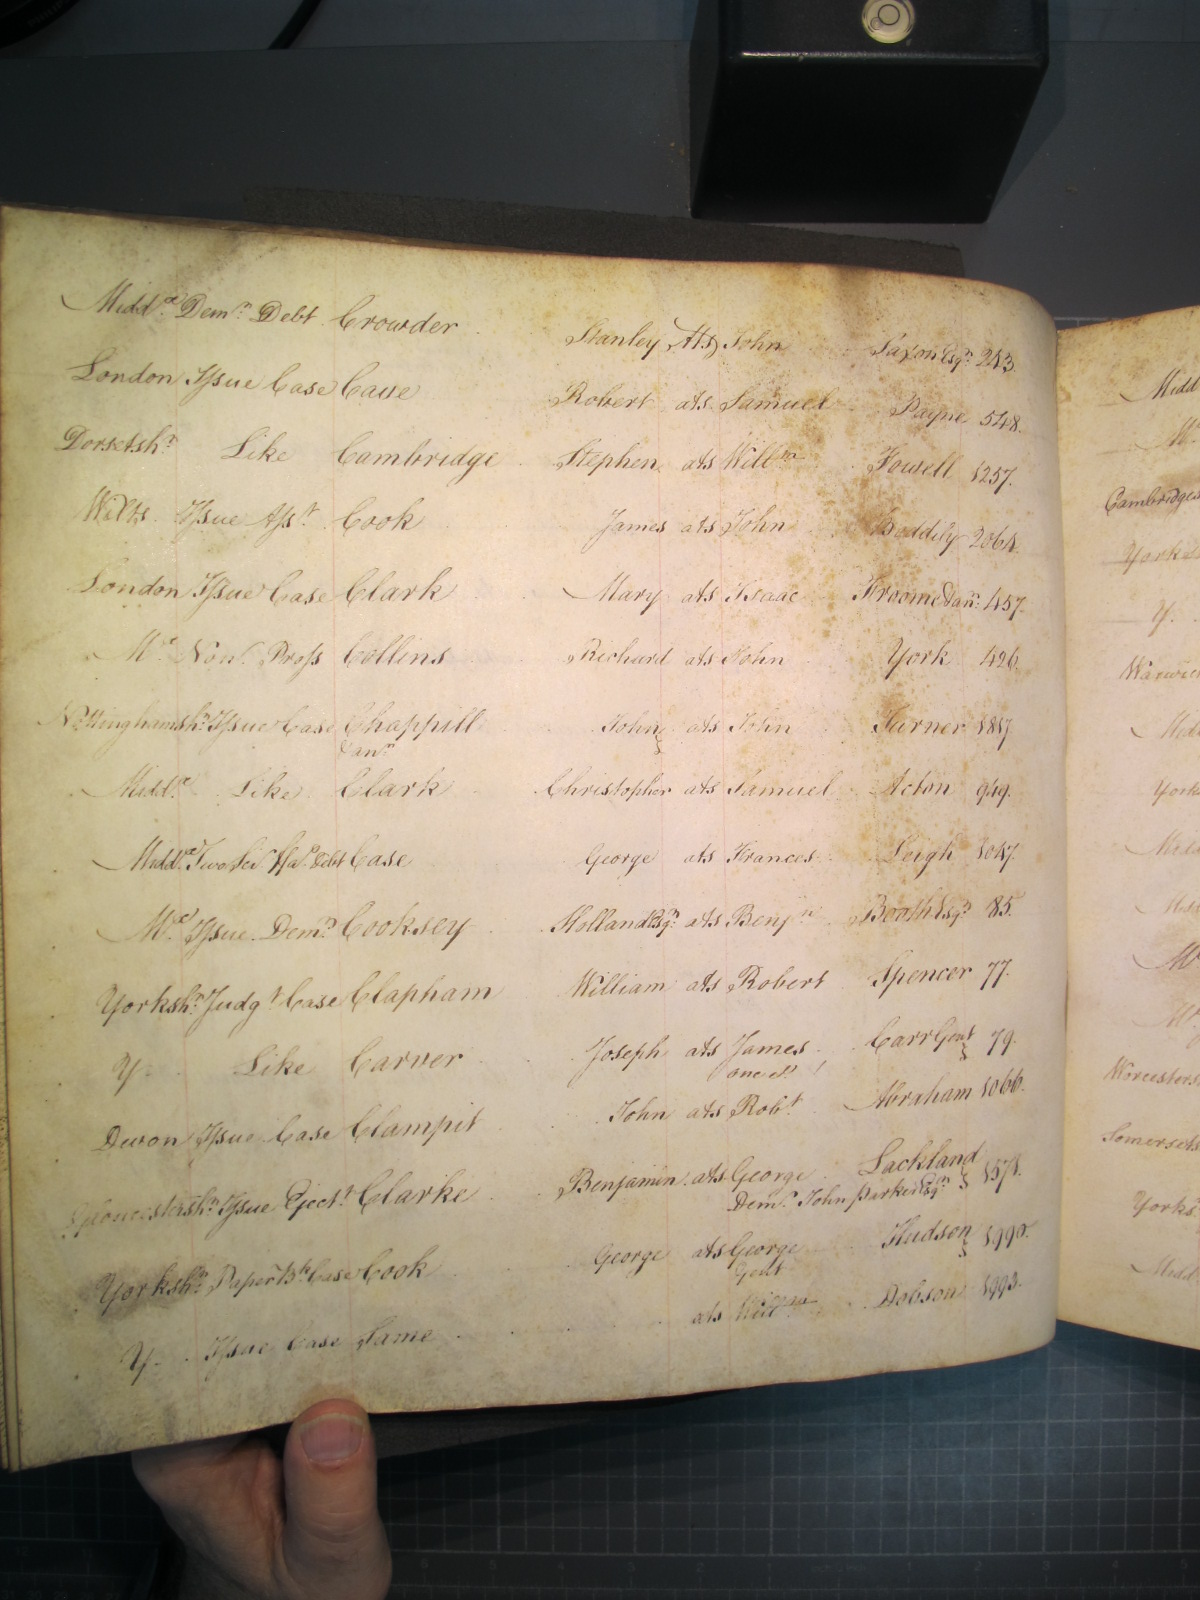 Middx. Demr. Debt Crowder Stanley Ats John Saxon Esqr. 243.
London Issue Case Cave Robert ats Samuel Payne 548.
Dorsetshr. Like Cambridge Stephen ats Willm Fowell 1257.
Wilts. Issue Asst. Cook James ats John Boddily 2064
London Issue Case Clark Mary ats Isaac Froome 457.
Mx. Non. Pross Collins Richard ats John York 426.
Nottinghamshr. Issue Case Chappill John ats John Turner 1817
Middx. Like Clark Christopher ats Samuel Acton 949.
Middx. Two Sci Fas. Debt Case George ats Frances Leigh 1047.
Mx. Issue Demr. Cooksey Holland Esqr. ats Benjn. Booth Esqr. 85.
Yorkshr. Judgt. Case Clapham William ats Robert Spencer 77.
Y. Like Carver Joseph ats James Carr Gent 79.
one &c
Devon Issue Case Clampit John ats Robt. Abraham 1066.
Gloucestershr. Issue Ejectt. Clarke Benjamin ats George Lackland 1571.
Demr. John Parker Esqr.
Yorkshr. Paper Bk. Case Cook George ats George Hudson
Gent
Y. Issue Case Same ats Willm Dobson 1993.
Midd
Mr
Cambridges
Yorks
Y.
Warwick
Midd
Yorks
M
Worcesters
Somersets
Yorks
Midd